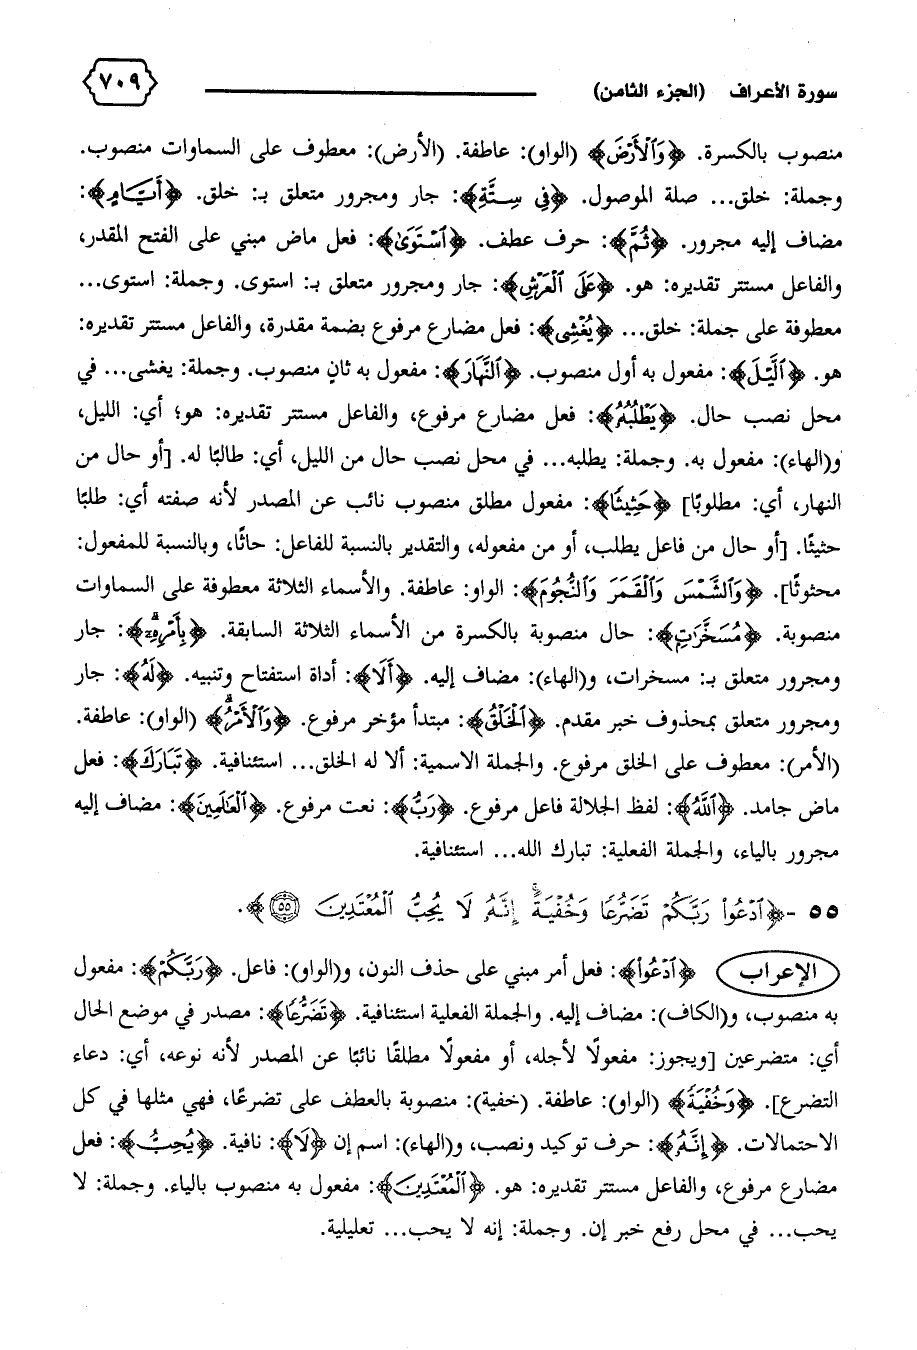 سورة الأعراف (الجزء الثامن) ٧٠٩
منصوب بالكسرة. ﴿وَٱلْأَرْضَ﴾ (الواو): عاطفة. (الأرض): معطوف على السماوات منصوب.
وجملة: خلق... صلة الموصول. ﴿فِى سِتَّةِ﴾: جار ومجرور متعلق بـ: خلق. ﴿أَيَّامٍ﴾:
مضاف إليه مجرور. ﴿ثُمَّ﴾: حرف عطف. ﴿ٱسْتَوَىٰ﴾: فعل ماض مبني على الفتح المقدر،
والفاعل مستتر تقديره: هو. ﴿عَلَى ٱلْعَرْشِ﴾: جار ومجرور متعلق بـ: استوى. وجملة: استوى...
معطوفة على جملة: خلق... ﴿يُغْشِى﴾: فعل مضارع مرفوع بضمة مقدرة، والفاعل مستتر تقديره:
هو. ﴿ٱلَّيْلَ﴾: مفعول به أول منصوب. ﴿ٱلنَّهَارَ﴾: مفعول به ثانٍ منصوب. وجملة: يغشى... في
محل نصب حال. ﴿يَطْلُبُهُۥ﴾: فعل مضارع مرفوع، والفاعل مستتر تقديره: هو؛ أي: الليل،
و(الهاء): مفعول به. وجملة: يطلبه... في محل نصب حال من الليل، أي: طالبًا له. [أو حال من
النهار، أي: مطلوبًا] ﴿حَثِيثًا﴾: مفعول مطلق منصوب نائب عن المصدر لأنه صفته أي: طلبًا
حثيثًا. [أو حال من فاعل يطلب، أو من مفعوله، والتقدير بالنسبة للفاعل: حاثًا، وبالنسبة للمفعول:
محثوثًا]. ﴿وَٱلشَّمْسَ وَٱلْقَمَرَ وَٱلنُّجُومَ﴾: الواو: عاطفة. والأسماء الثلاثة معطوفة على السماوات
منصوبة. ﴿مُسَخَّرَٰتٍ﴾: حال منصوبة بالكسرة من الأسماء الثلاثة السابقة. ﴿بِأَمْرِهِۦٓ﴾: جار
ومجرور متعلق بـ: مسخرات، و(الهاء): مضاف إليه. ﴿أَلَا﴾: أداة استفتاح وتنبيه. ﴿لَهُ﴾: جار
ومجرور متعلق بمحذوف خبر مقدم. ﴿ٱلْخَلْقُ﴾: مبتدأ مؤخر مرفوع. ﴿وَٱلْأَمْرُ ۗ﴾ (الواو): عاطفة.
(الأمر): معطوف على الخلق مرفوع. والجملة الاسمية: ألا له الخلق... استئنافية. ﴿تَبَارَكَ﴾: فعل
ماض جامد. ﴿ٱللَّهُ﴾: لفظ الجلالة فاعل مرفوع. ﴿رَبُّ﴾: نعت مرفوع. ﴿ٱلْعَٰلَمِينَ﴾: مضاف إليه
مجرور بالياء، والجملة الفعلية: تبارك الله... استئنافية.
٥٥ -﴿ٱدْعُوا۟ رَبَّكُمْ تَضَرُّعًا وَخُفْيَةً ۚ إِنَّهُۥ لَا يُحِبُّ ٱلْمُعْتَدِينَ ٥٥﴾.
الإعراب ﴿ٱدْعُوا۟﴾: فعل أمر مبني على حذف النون، و(الواو): فاعل. ﴿رَبَّكُمْ﴾: مفعول
به منصوب، و(الكاف): مضاف إليه. والجملة الفعلية استئنافية. ﴿تَضَرُّعًا﴾: مصدر في موضع الحال
أي: متضرعين [ويجوز: مفعولًا لأجله، أو مفعولًا مطلقًا نائبًا عن المصدر لأنه نوعه، أي: دعاء
التضرع]. ﴿وَخُفْيَةً﴾ (الواو): عاطفة. (خفية): منصوبة بالعطف على تضرعًا، فهي مثلها في كل
الاحتمالات. ﴿إِنَّهُۥ﴾: حرف توكيد ونصب، و(الهاء): اسم إن ﴿لَا﴾: نافية. ﴿يُحِبُّ﴾: فعل
مضارع مرفوع، والفاعل مستتر تقديره: هو. ﴿ٱلْمُعْتَدِينَ﴾: مفعول به منصوب بالياء. وجملة: لا
يحب... في محل رفع خبر إن. وجملة: إنه لا يحب... تعليلية.